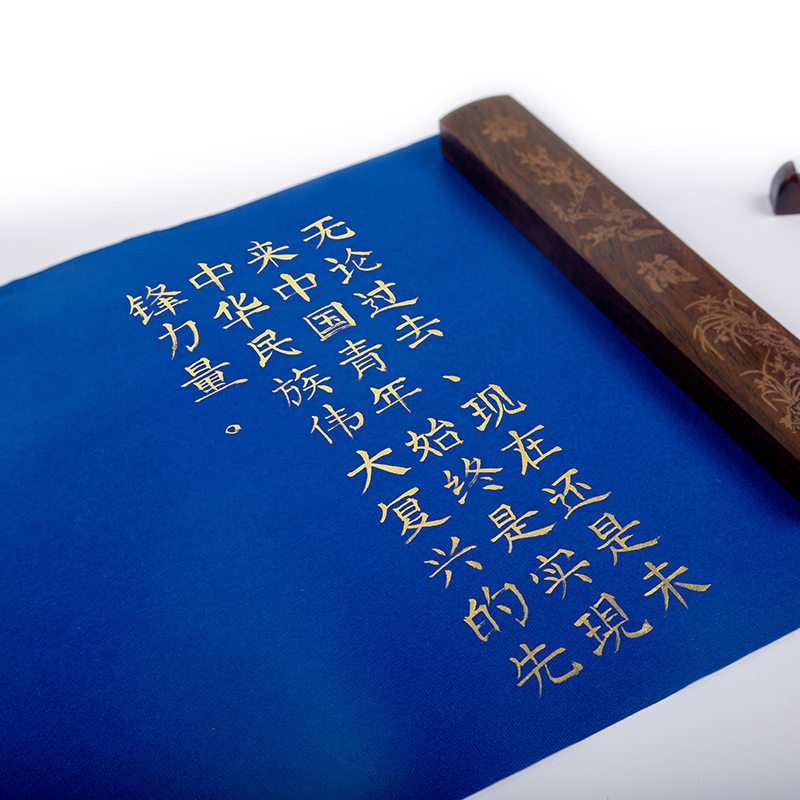 无论过去、现在还是未
来中国青年始终是实現
中华民族伟大复兴的先
锋力量。
蘭